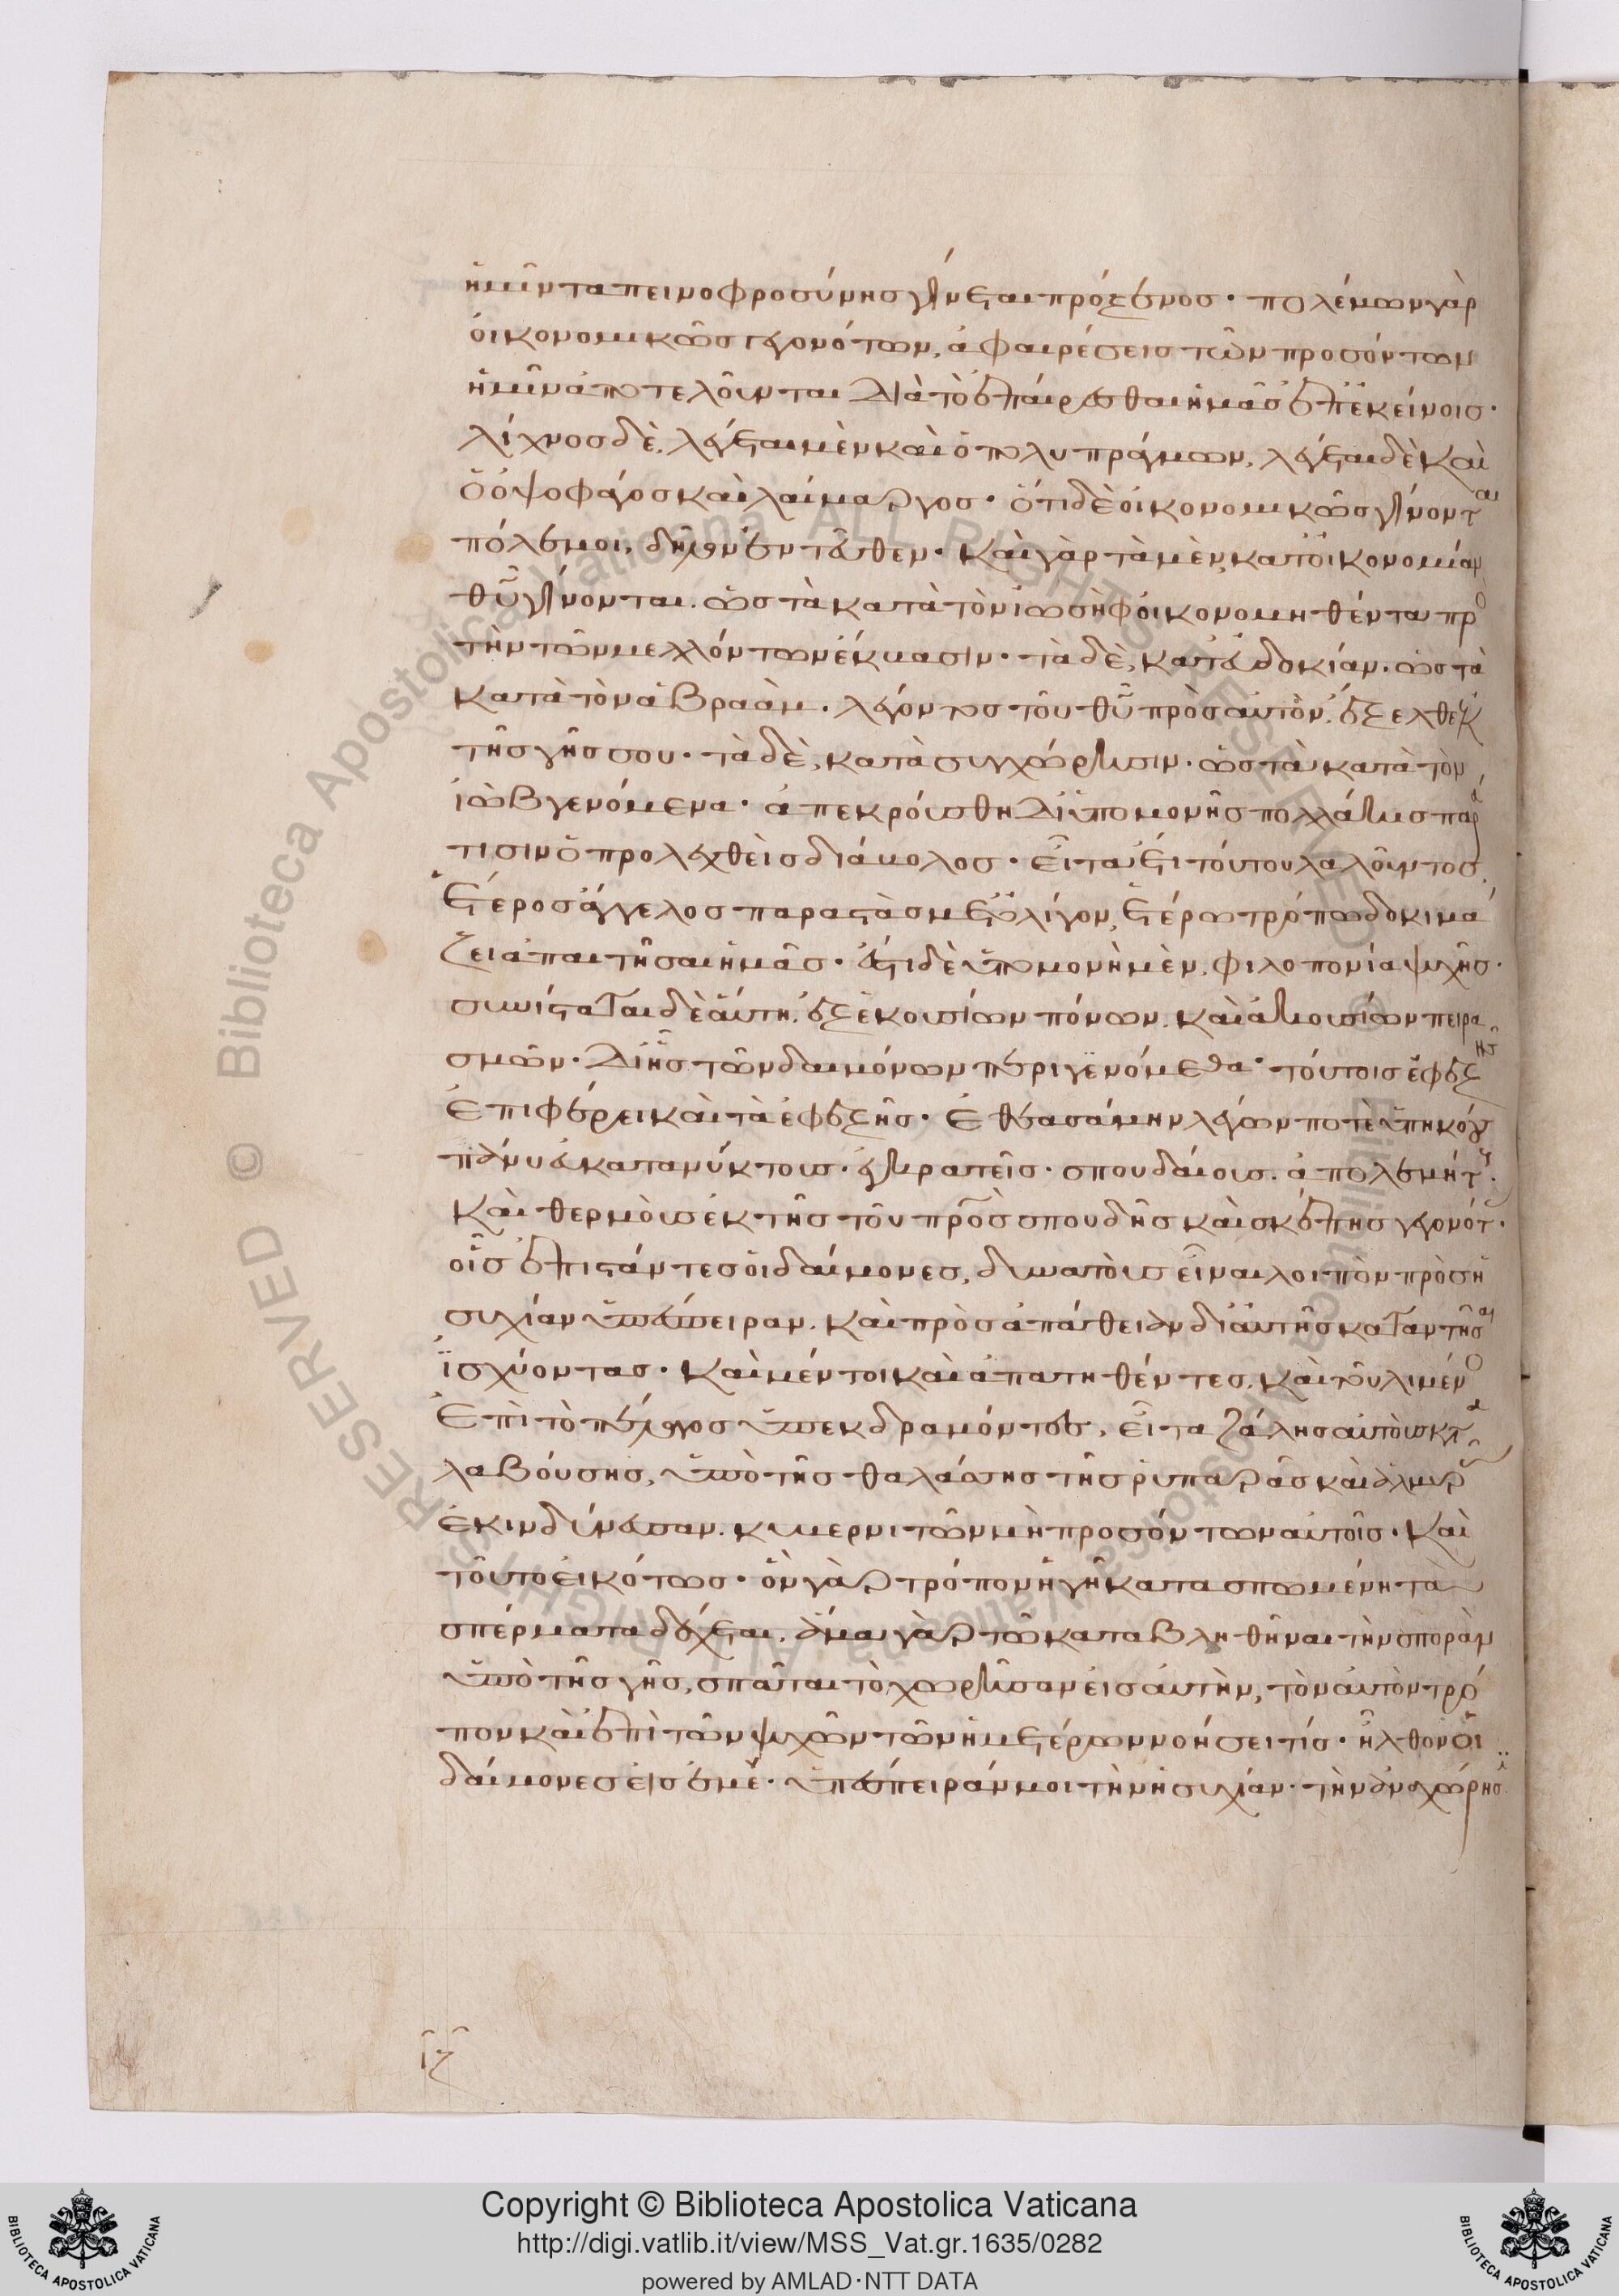 ἡμῖν ταπεινοφροσύνης γίνεται πρόξενος· πολέμων γὰρ
οἰκονομικῶς γεγονότων, ἀφαιρέσεις τῶν προσόντων
ἡμῖν ἀποτελοῦνται διὰ τὸ ἐπαίρεσθαι ἡμᾶς ἐπ' ἐκείνοις·
λίχνος δὲ, λέγεται μὲν καὶ ὁ πολυπράγμων, λέγεται δὲ καὶ
ὁ ὀψοφάγος καὶ λαίμαργος· ὅτι δὲ οἰκονομικῶς γίνοντ
πόλεμοι, δῆλον ἐντεῦθεν· καὶ γὰρ τὰ μὲν, κατ' οἰκονομίαν
θυ γίνονται. ὡς τὰ κατὰ τὸν ἰωσὴφ οἰκονομηθέντα πρ
τὴν τῶν μελλόντων ἔκβασιν· τὰ δὲ, κατ' εὐδοκίαν. ὡς τὰ
κατὰ τὸν ἀβραάμ. λέγοντος τοῦ θυ πρὸς αὐτόν. ἔξελθε ἐκ
τῆς γῆς σου· τὰ δὲ, κατὰ συγχώρησιν. ὡς τὰ κατὰ τὸν
ἰὼβ γενόμενα· ἀπεκρούσθη δι' ὑπομονῆς πολλάκις παρά
τισιν ὁ προλεχθεὶς διάβολος· εἶτα ἔτι τούτου λαλοῦντος.
ἕτερος ἄγγελος παραστὰς μετ' ὀλίγον, ἑτέρω τρόπω δοκιμά
ζει ἀπατῆσαι ἡμᾶς· ἔστι δὲ ὑπομονὴ μὲν, φιλοπονία ψυχῆς·
συνίσταται δὲ αὕτη. ἐξ ἑκουσίων πόνων. καὶ ἀκουσίων πειρα
σμῶν· δι' ἧς τῶν δαιμόνων περιγενόμεθα· τούτοις ἐφεξῆς
ἐπιφέρει καὶ τὰ ἐφεξῆς· ἐθεασάμην λέγων ποτὲ ὑπηκόους
πάνυ εὐκατανύκτους. ἐγκρατεῖς. σπουδαίους. ἀπολεμήτους.
καὶ θερμοὺς ἐκ τῆς τοῦ προς σπουδῆς καὶ σκέπης γεγονότ.
οἷς ἐπιστάντες οἱ δαίμονες, δυνατοὺς εἶναι λοιπὸν πρὸς ἡ
συχίαν ὑπέσπειραν. καὶ πρὸς ἀπάθειαν δι' αὐτῆς καταντῆσαι
ἰσχύοντας· καὶ μέντοι καὶ ἀπατηθέντες. καὶ τοῦ λιμένος
ἐπὶ τὸ πέλαγος ὑπεκδραμόντες, εἶτα ζάλης αὐτοὺς κατα
λαβούσης, ὑπὸ τῆς θαλάσσης τῆς ῥυπαρᾶς καὶ ἁλμυρᾶς
ἐκινδύνευσαν. κυβερνητῶν μὴ προσόντων αὐτοῖς· καὶ
τοῦτο εἰκότως· ὃν γὰρ τρόπον ἡ γῆ κατασπωμένη τὰ
σπέρματα δέχεται. ἅμα γὰρ τῶ καταβληθῆναι τὴν σπορὰν
ὑπὸ τῆς γῆς, σπᾶται τὸ χωρῆσαν εἰς αὐτήν, τὸν αὐτὸν τρό
πον καὶ ἐπὶ τῶν ψυχῶν τῶν ἡμετέρων νοήσει τίς· ἦλθον οἱ
δαίμονες εἰς ἐμέ· ὑπέσπειράν μοι τὴν ἡσυχίαν. τὴν ἀναχώρησ
ιζ
Copyright © Biblioteca Apostolica Vaticana
http://digi.vatlib.it/view/MSS_Vat.gr.1635/0282
powered by AMLAD·NTT DATA
BIBLIOTECA APOSTOLICA VATICANA
BIBLIOTECA APOSTOLICA VATICANA